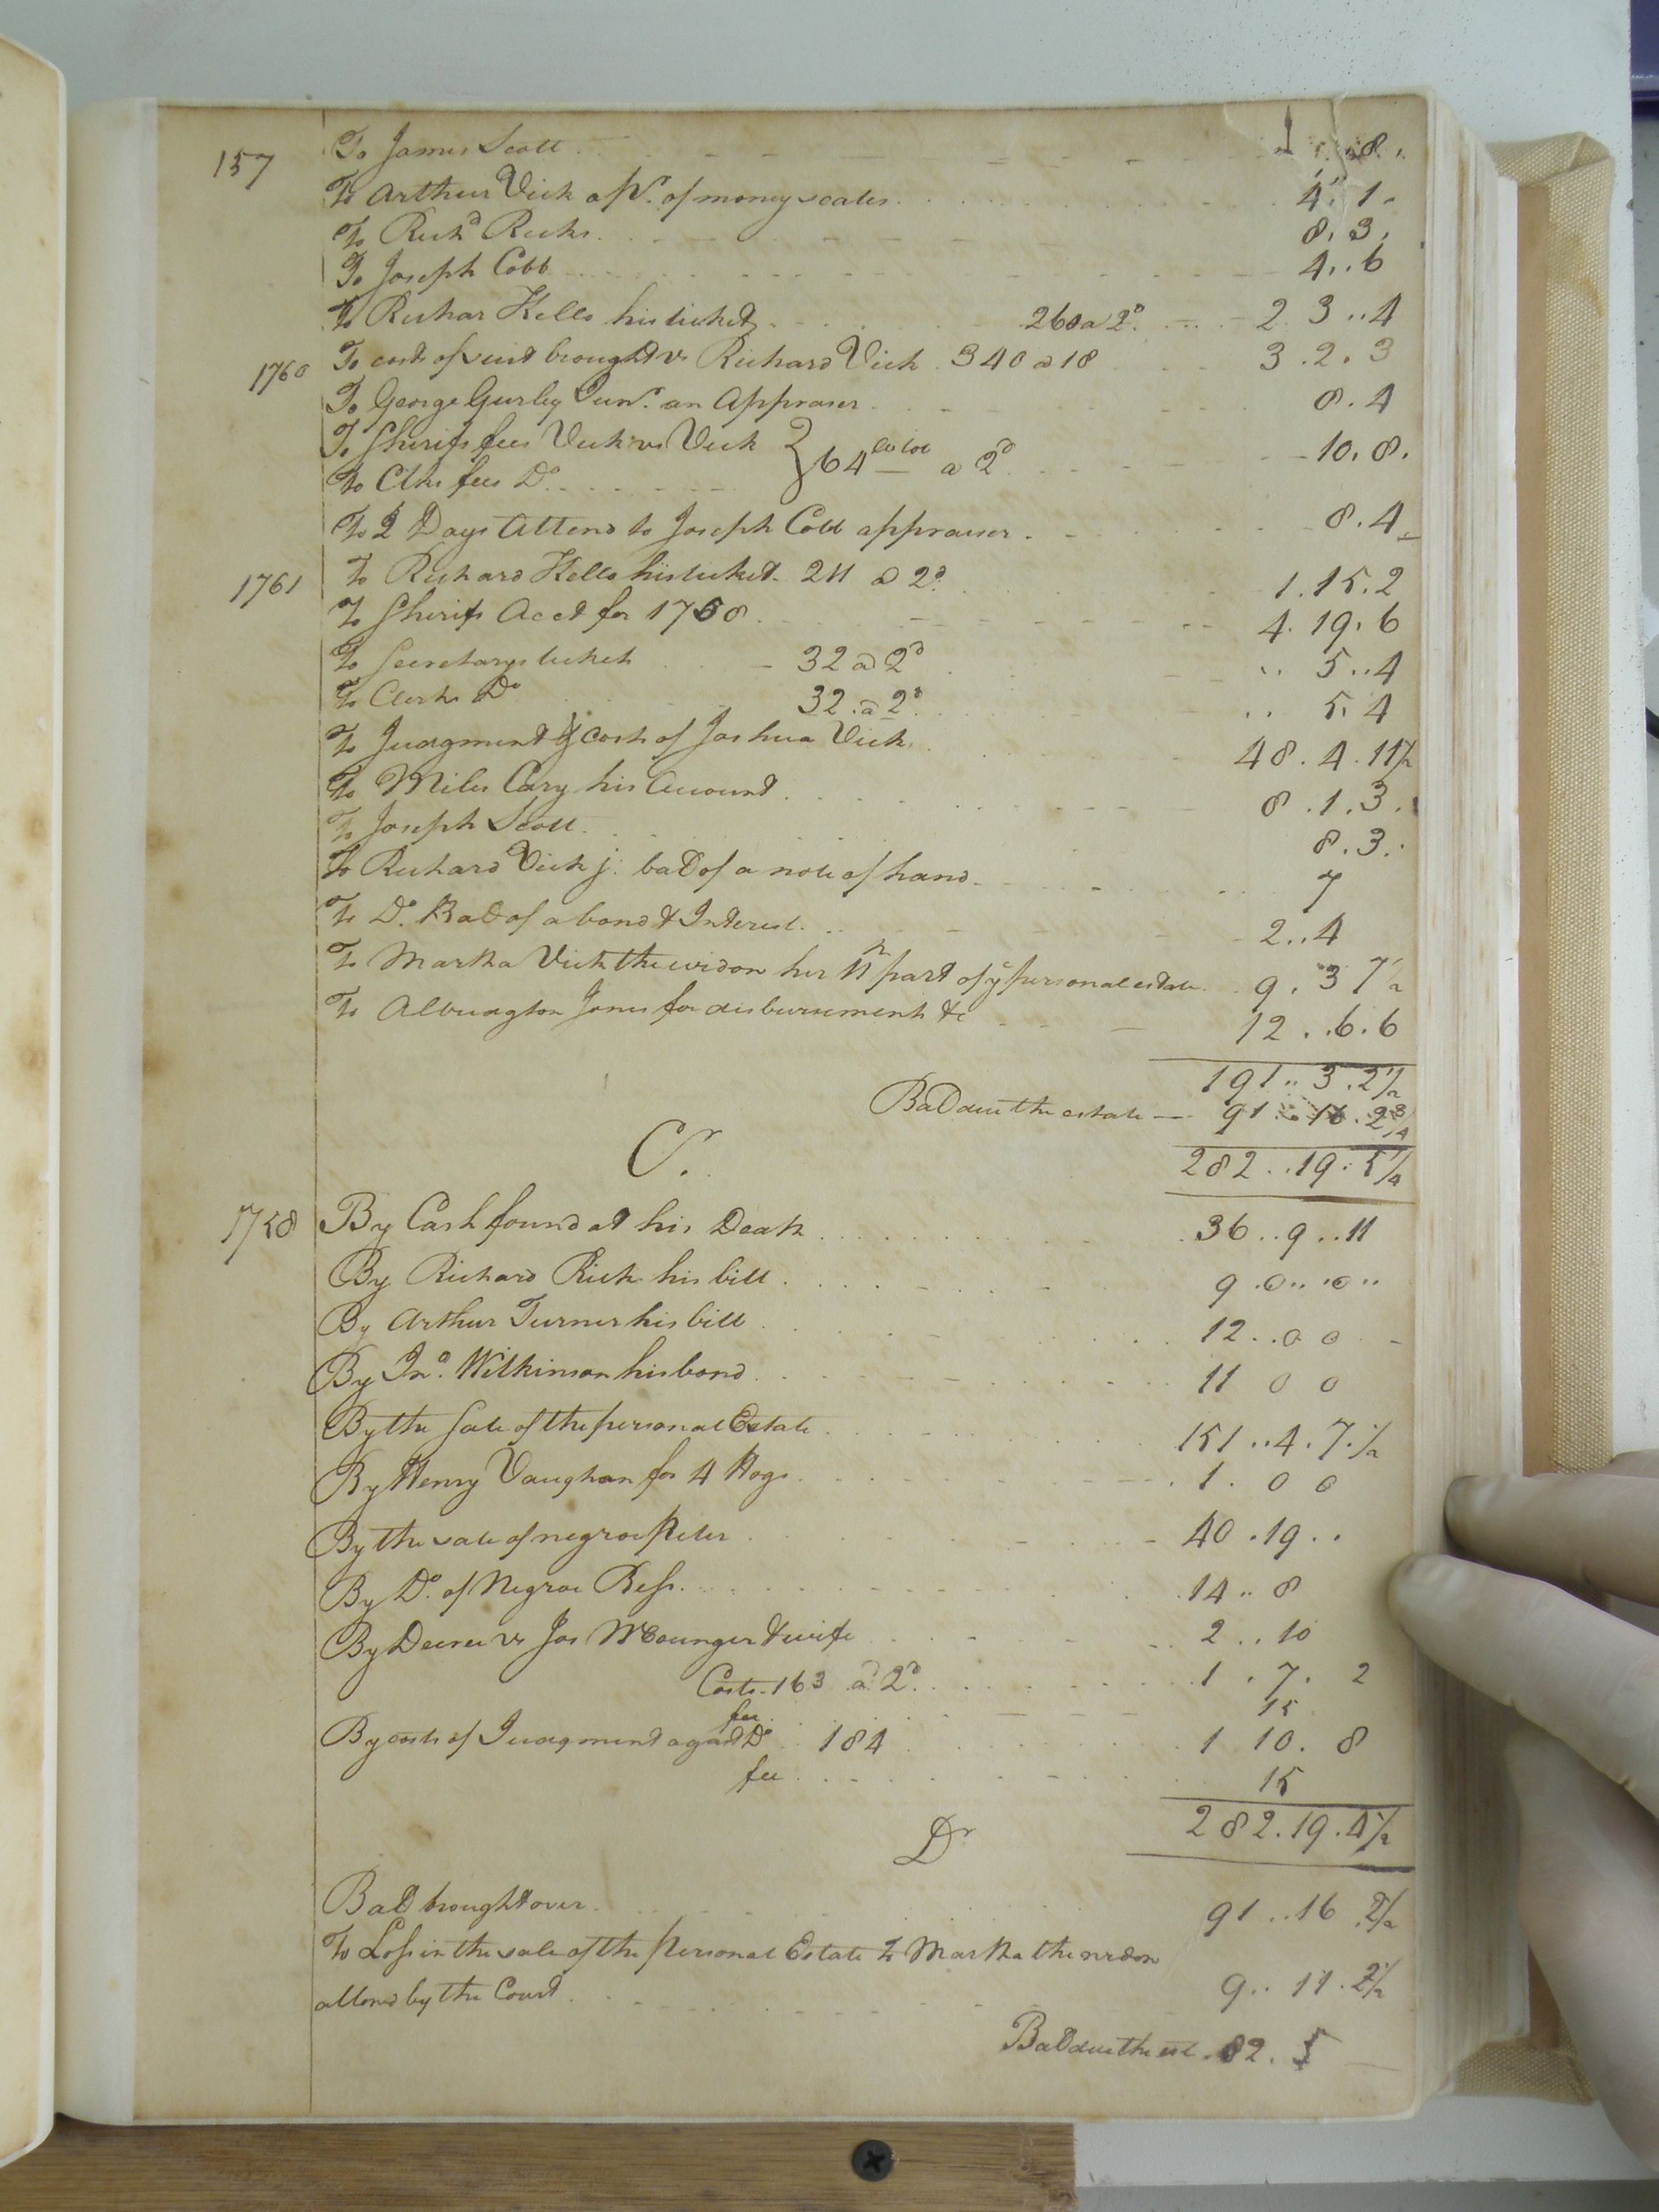 157 To James Scott 1 . 8 .
To Arthur Vick a pr. of money scales 4 . 1 .
To Richd Ricks 8 . 3 .
To Joseph Cobb 4 .. 6
To Richar Kello his ticket 260 a 2d 2 3 .. 4
1760 To costs of suit brought vs Richard Vick 340 a 18 3 . 2 . 3
To George Gurley Junr. an Appraser 8 . 4
To Sherifs fees Vick vs Vick } 64 a 2d 10 . 8 .
To Clks fees Do
To 2 Days Attend to Joseph Cobb appraiser 8 . 4
1761 To Richard Kello his ticket 211 a 2d 1 . 15 . 2
To Sherifs Acct for 1758 4 . 19 . 6
To Secretarys ticket 32 a 2d .. 5 .. 4
To Clerks Do 32 a 2d .. 5 . 4
To Judgment & costs of Joshua Vick 48 . 4 . 11 1/2
To Miles Cary his Account 8 . 1 . 3 .
To Joseph Scott 8 . 3 .
To Richard Vick j: bal of a note of hand 7
To Do. Bal of a bond & Interest 2 .. 4
To Martha Vick the widow her 11th part of ye personal estate 9 . 3 7 1/2
To Albridgton Jones for disbursements &c 12 .. 6 . 6
191 .. 3 . 2 1/2
Bal due the estate 91 .. 16 . 2 3/4
Cr. 282 .. 19 . 5 1/4
1758 By Cash found at his Death 36 .. 9 .. 11
By Richard Rick his bill 9 . 0 .. 0 ..
By Arthur Turner his bill 12 .. 0 0
By Jno. Wilkinson his bond 11 0 0
By the Sale of the personal Estate 151 .. 4 . 7 . 1/2
By Henry Vaughan for 4 Hogs 1 . 0 0
By the sale of negroe Peter 40 . 19 . .
By Do. of Negroe Bess 14 .. 8
By Decree vs Jas & wife 2 .. 10
Costs 163 a 2d 1 . 7 . 2
fee 15
By costs of Judgment against Do 184 1 10 . 8
fee 15
282 . 19 . 4 1/2
Dr
Bal brought over 91 .. 16 . 2 1/2
To Loss in the sale of the Personal Estate to Martha the widow
allowd by the Court 9 .. 11 . 2 1/2
Bal due the est . 82 . 5